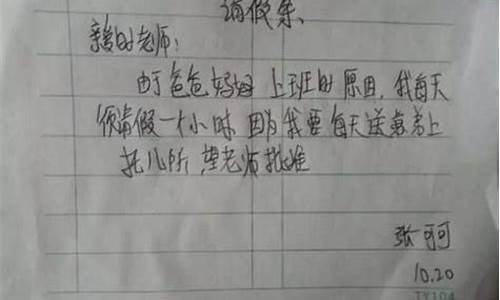 请假条
亲爱的老师:
由于爸爸妈妈上班的原因,我每天
须请假一个小时,因为我要每天送弟弟上
托儿所,望老师批准
张可可
10.20